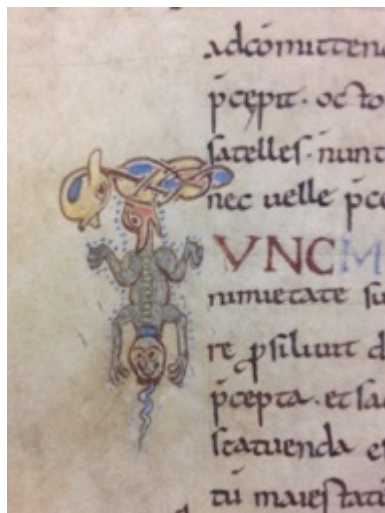 adcómittend
p̄cepit · octo
satelles · nunt
nec uelle p̄ce
VNC M
numietate su
re ꝓsiliuit d
p̄cepta · et sa
statuenda e
tū maiestati